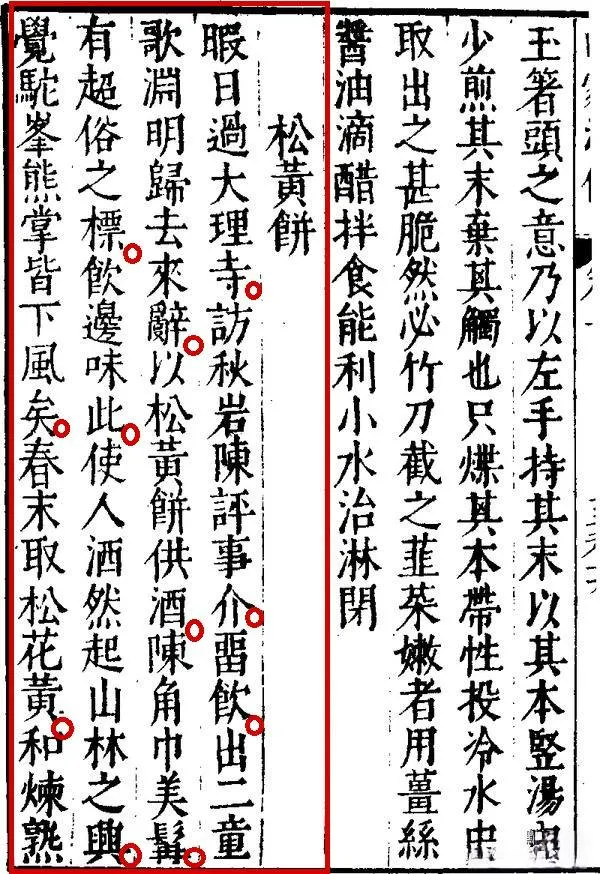 玉箸頭之意乃以左手持其末以其本竪湯
少煎其末棄其觸也只煠其本帶性投冷水中
取出之甚脆然必竹刀截之韮菜嫩者用薑絲
醬油滴醋拌食能利小水治淋閉
松黃餅
暇日過大理寺訪秋岩陳評事介畱飮出二童
歌淵明歸去來辭以松黃餅供酒陳角巾美髯
有超俗之標飮邊味此使人洒然起山林之興
覺駝峯熊掌皆下風矣春末取松花黃和煉熟